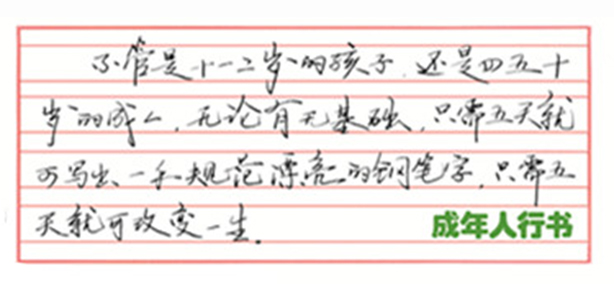 不管是十一二岁的孩子,还是四五十
岁的成人,无论有无基础,只需五天就
可写出一手规范漂亮的钢笔字,只需五
天就可改变一生.
成年人行书